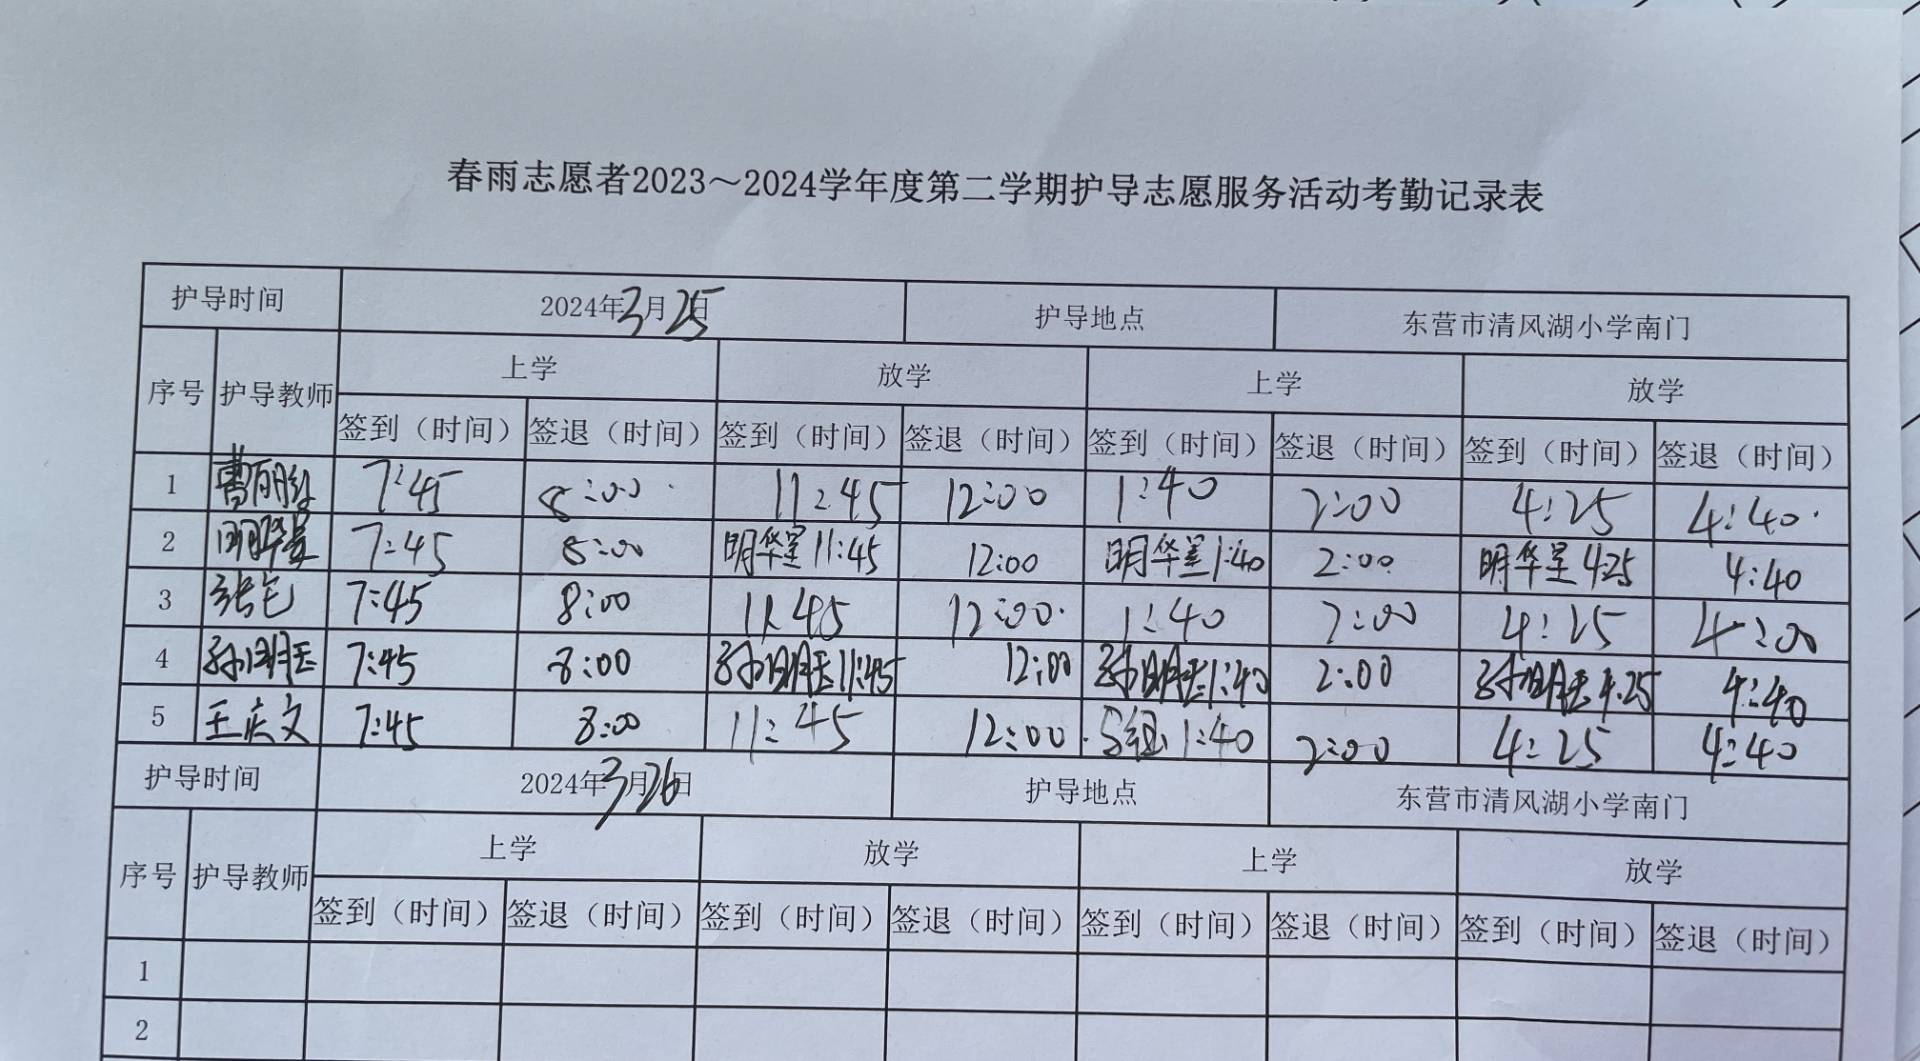 春雨志愿者2023～2024学年度第二学期护导志愿服务活动考勤记录表
护导时间 2024年3月25日 护导地点 东营市清风湖小学南门
序号 护导教师 上学 放学 上学 放学
签到（时间） 签退（时间） 签到（时间） 签退（时间） 签到（时间） 签退（时间） 签到（时间） 签退（时间）
1 7:45 8:00 11:45 12:00 1:40 2:00 4:25 4:40
2 明华星 7:45 8:00 明华星 11:45 12:00 明华星 1:40 2:00 明华星 4:25 4:40
3 7:45 8:00 11:45 12:00 1:40 2:00 4:25 4:00
4 孙明玉 7:45 8:00 孙明玉 11:45 12:00 孙明玉 1:40 2:00 孙明玉 4:25 4:40
5 王庆文 7:45 8:00 11:45 12:00 1:40 2:00 4:25 4:40
护导时间 2024年3月26日 护导地点 东营市清风湖小学南门
序号 护导教师 上学 放学 上学 放学
签到（时间） 签退（时间） 签到（时间） 签退（时间） 签到（时间） 签退（时间） 签到（时间） 签退（时间）
1
2